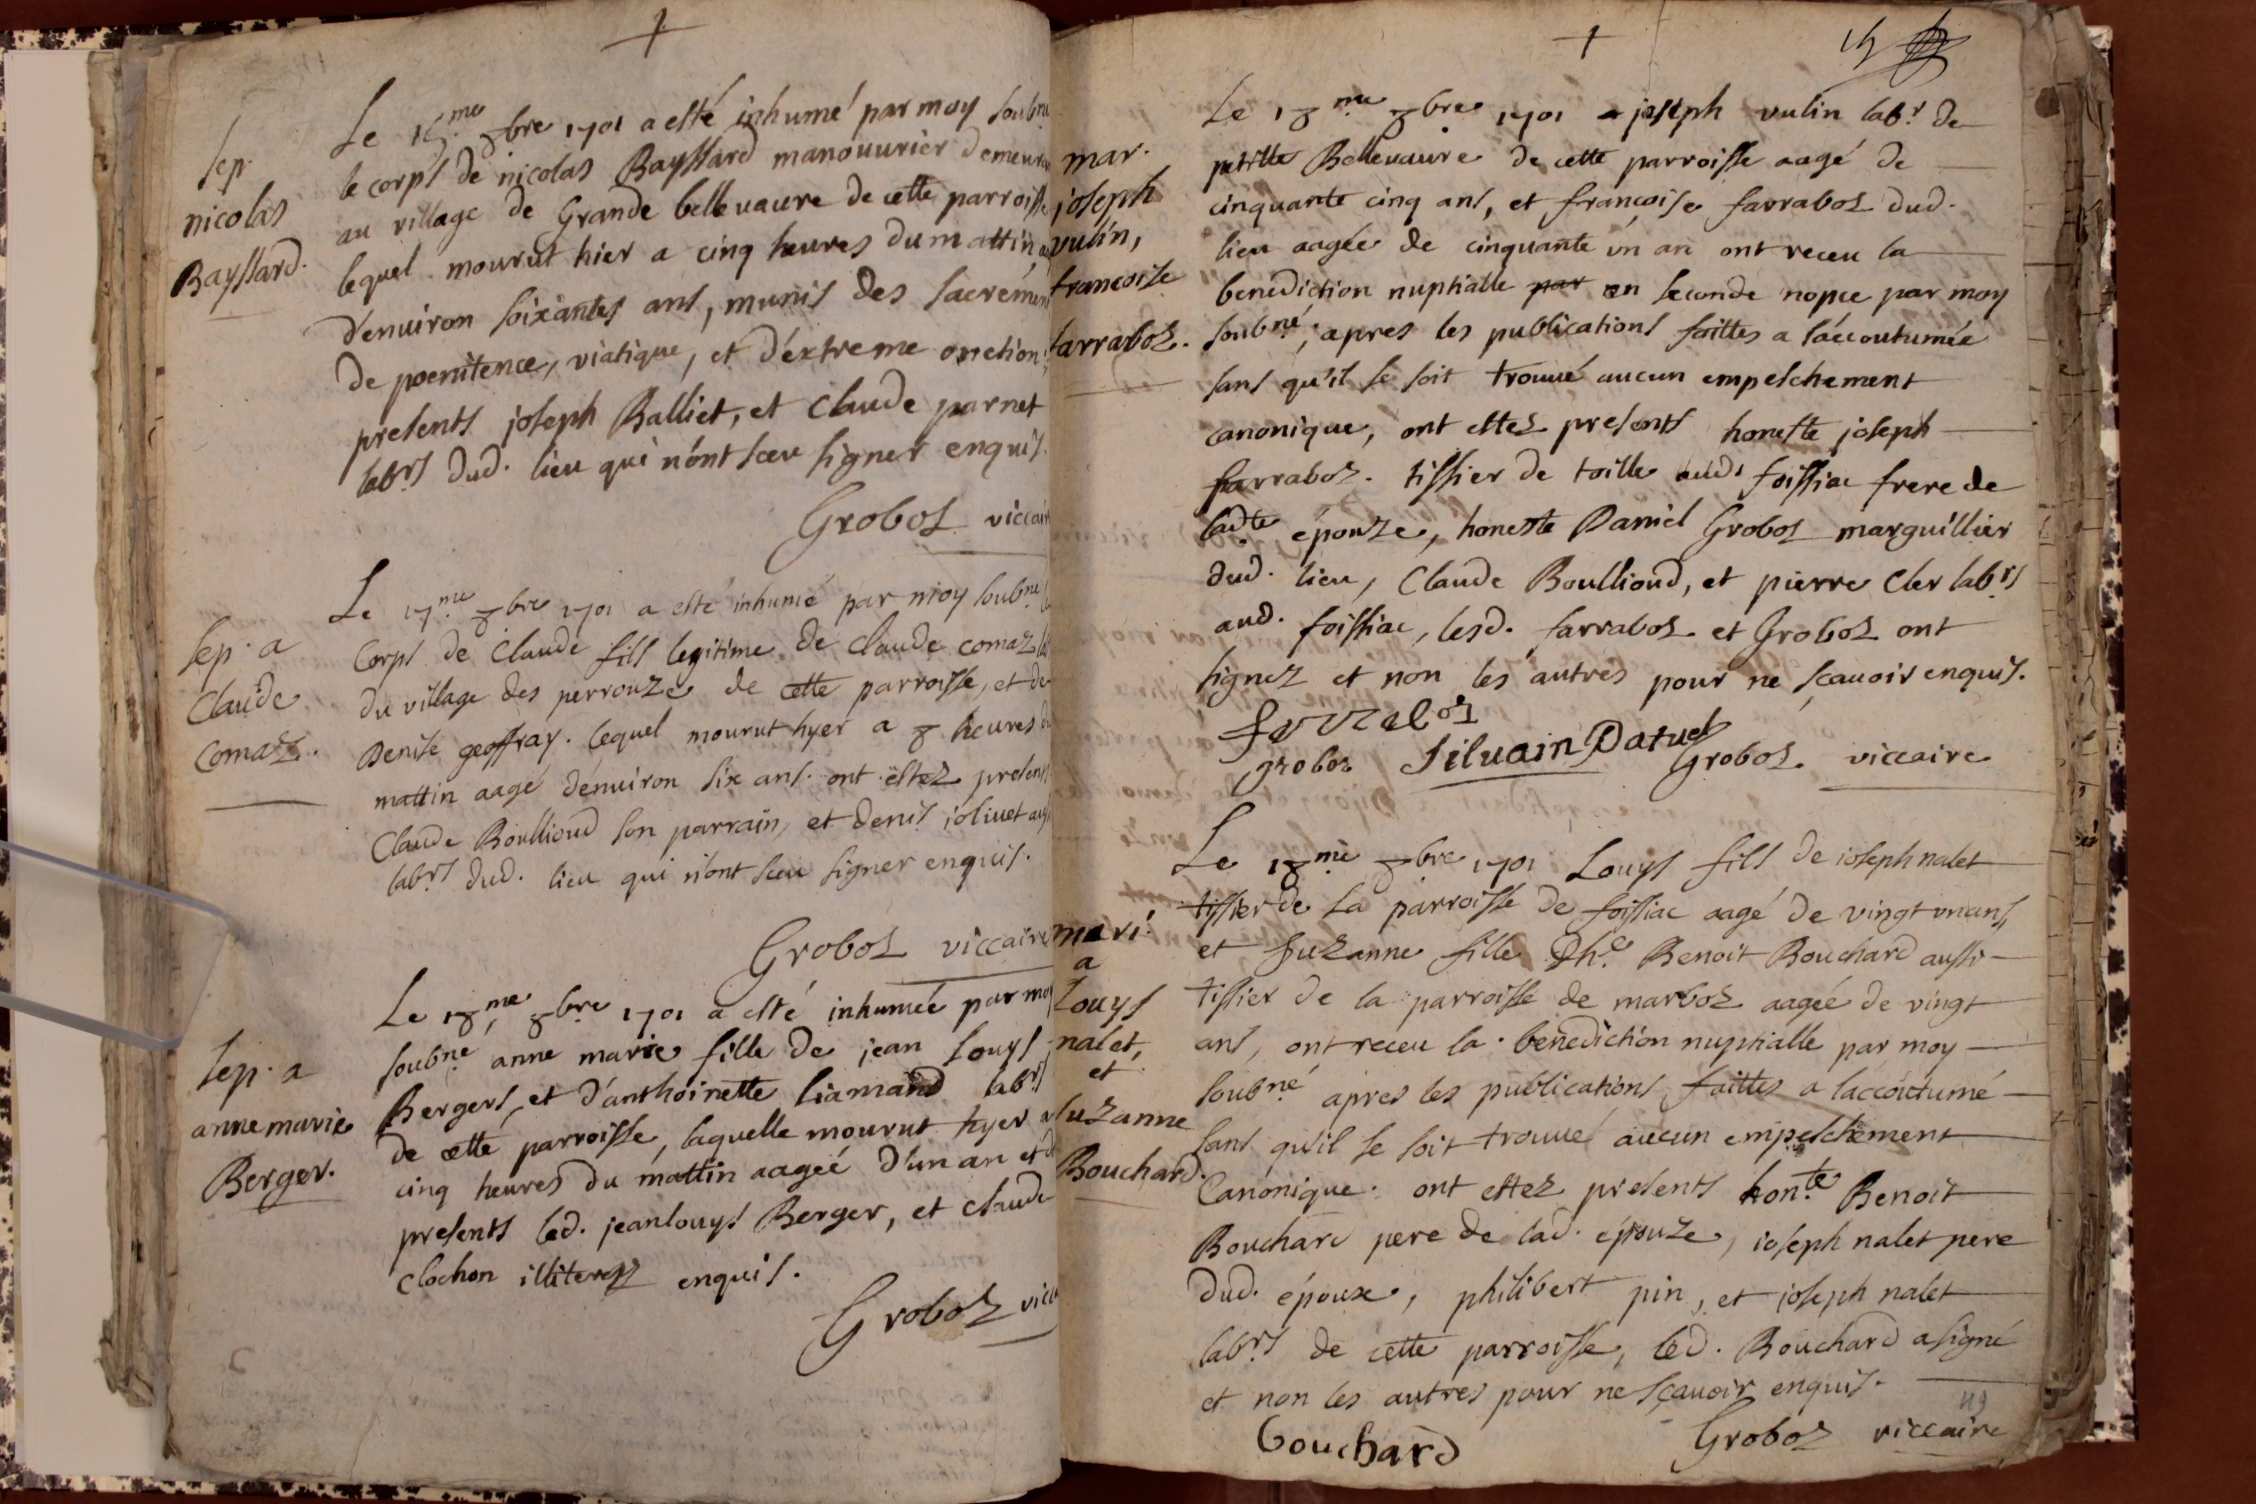 sep.
nicolas
Bayssard.
Le 16.me 8bre 1701 a esté inhumé par moy soubné
le corps de nicolas Bayssard manouurier demeurant
au village de Grande belleuaure de cette parroisse
lequel mourut hier a cinq heures du mattin
d'enuiron soixantes ans, munis des sacrements
de poenitence, viatique, et d'éxtreme onction
presents joseph Balliet, et Claude parnet
labrs dud. lieu qui n'ont sceu signer enquis.
Grobos viccaire
sep. a
Claude
Comaz.
Le 17.me 8bre 1701 a esté inhumé par moy soubné
Corps de Claude fils legitime de Claude comaz
du village des perrouze de cette parroisse, et de
Denise geoffray. lequel mourut hyer a 8 heures du
mattin aagé d'enuiron six ans. ont estez presents
Claude Boullioud son parrain, et denis joliuet
labrs dud. lieu qui n'ont sceu signer enquis.
Grobos viccaire
sep. a
anne marie
Berger.
Le 18.me 8bre 1701 a esté inhumée par moy
soubné anne marie fille de jean louys
Bergers, et d'anthoinette liamand labrs
de cette parroisse, laquelle mourut hyer a
cinq heures du mattin aageé d'un an et
presents led. jean louys Berger, et claude
clochon illiterez enquis.
Grobos vicc
mar.
joseph
vulin,
francoise
farrabos.
Le 18me 8bre 1701 a joseph vulin labr de
petitte Belleuaure de cette parroisse aagé de
cinquante cinq ans, et francoise farrabos dud.
lieu aagée de cinquante un an ont receu la
benediction nuptialle par en seconde nopce par moy
soubné, apres les publications faittes a l'accoutumée
sans qu'il se soit trouué aucun empeschement
canonique, ont estez presents honeste joseph
farrabos. tissier de toille aud. foissiac frere de
ladte épouze, honeste Daniel Grobos marguillier
dud. lieu, Claude Boullioud, et pierre Cler labrs
aud. foissiac, lesd. farrabos et Grobos ont
signez et non les autres pour ne sçauoir enquis.
ferrabos
grobos Siluain Datuel Grobos viccaire
mari.
a
Louys
nalet,
et
suzanne
Bouchard.
Le 18.me 8bre 1701 Louys fils de ioseph nalet
tissier de la parroisse de foissiac aagé de vingt vn ans,
et suzanne fille d'h.e Benoit Bouchard aussi
tissier de la parroisse de marbos aageé de vingt
ans, ont receu la benediction nuptialle par moy
soubné apres les publications faittes a laccoutumé
sans qu'il se soit trouué aucun empeschement
Canonique. ont estez presents hon.te Benoit
Bouchard pere de lad. épouze, ioseph nalet pere
dud. époux, philibert pin, et joseph nalet
labrs de cette parroisse, led. Bouchard a signé
et non les autres pour ne sçauoir enquis.
bouchard Grobos viccaire